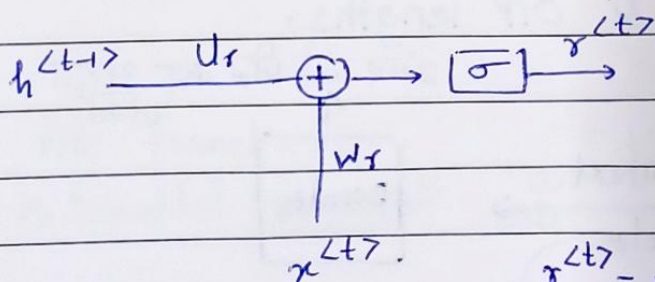 h<t-1> Ur + σ r<t>
Wr
x<t>. r<t> -